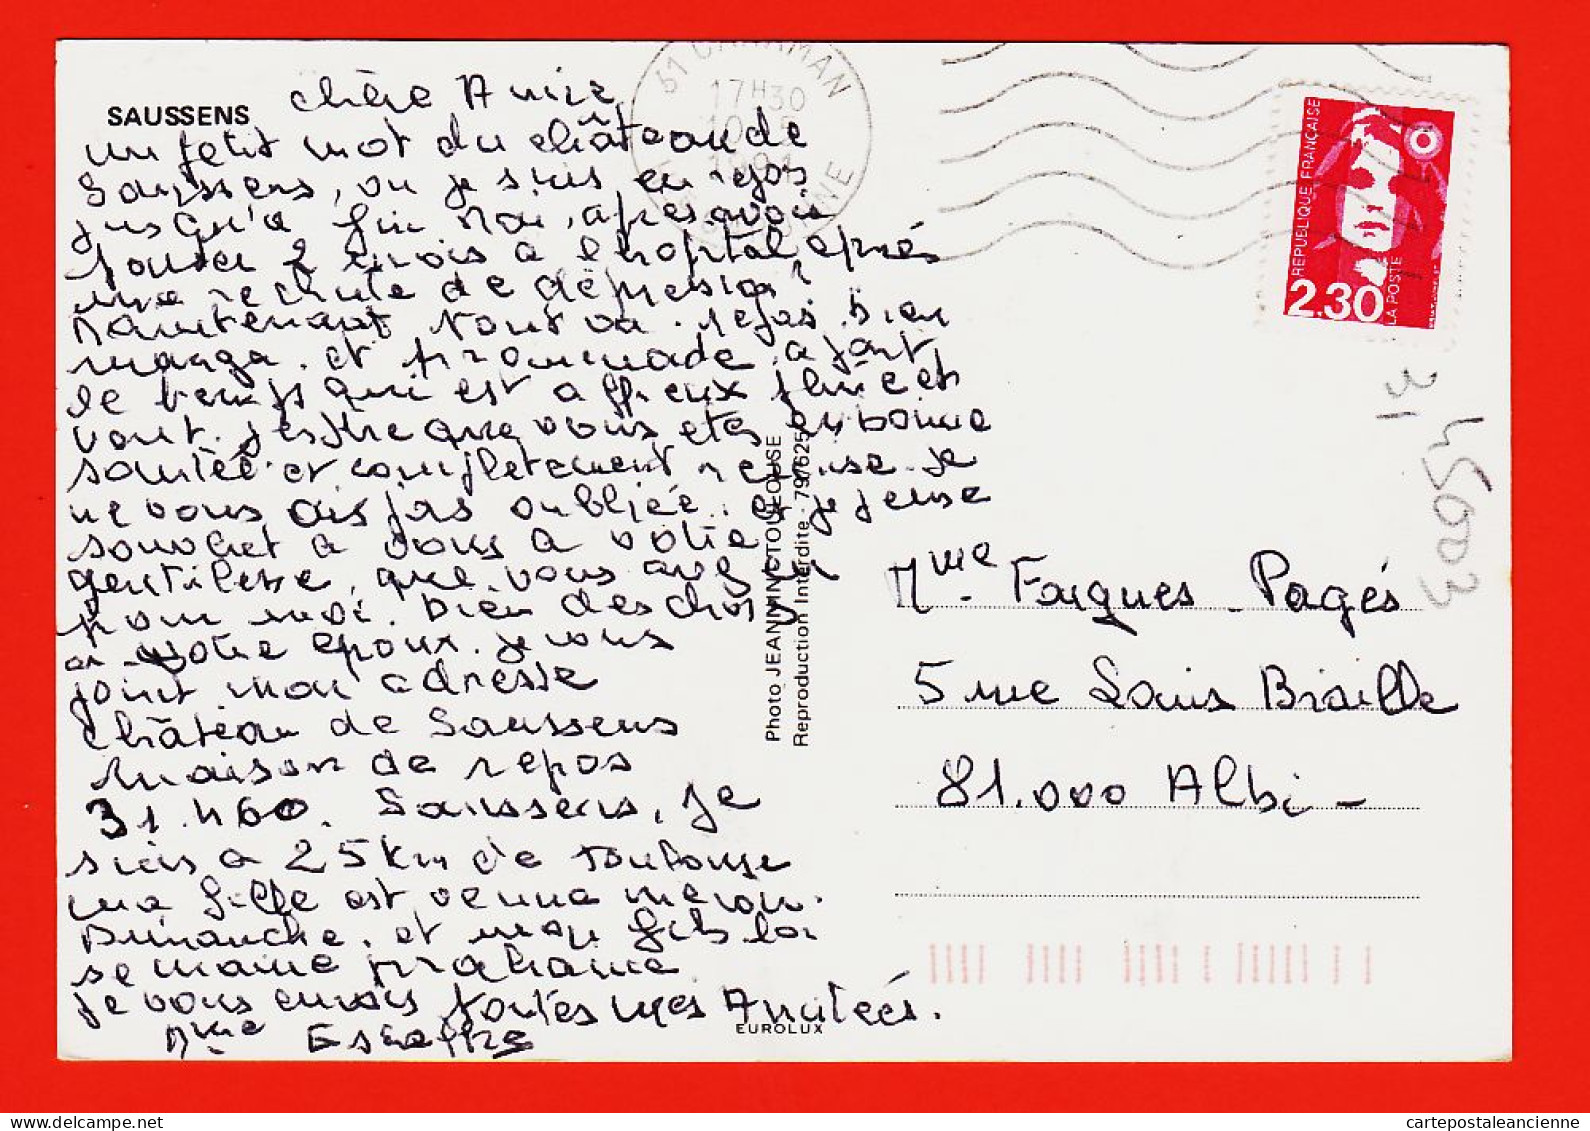 SAUSSENS
chère Amie,
un petit mot du château de
Saussens, ou je suis en repos
jusqu'a fin Mai, apres avoir
passer 2 mois a l'hopital, aprés
une rechute de dépression
Maintenant tout va. repas. bien
manga. et prommade. a part
le temps qui est affreux pluie et
vent. j'espkre que vous etes en bonne
santée. et completement remise. je
ne vous ais pas oubliée. et je pense
souvent a vous a votre
gentilesse, que vous avez eu
pour moi. bien des choses
a votre epoux. je vous
joint mon adresse
Château de Saussens
Maison de repos
31.460. Saussens, je
suis a 25 km de Toulouse
ma fille est venue me voir.
Dimanche. et mon fils la
semaine prochaine
je vous envois toutes mes Amitées.
Mme
Photo JEANNIN TOULOUSE
Reproduction Interdite - 797625
EUROLUX
31 CARAMAN
17H30
1991
REPUBLIQUE FRANÇAISE
LA POSTE
2.30
31
45003
Mme. Fargues - Pagés
5 rue Louis Braille
81.000 Albi -
cartepostaleancienne